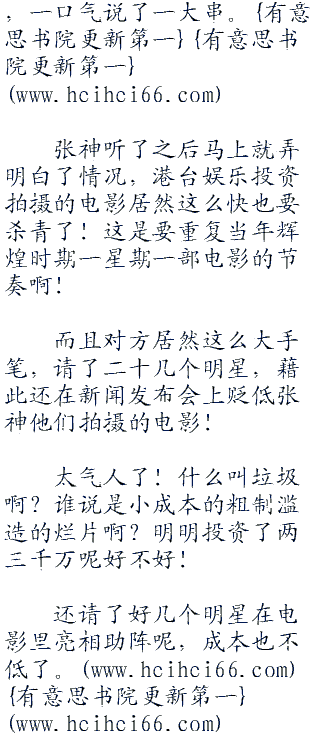 ，一口气说了一大串。{有意
思书院更新第一}{有意思书
院更新第一}
(www.hcihci66.com)
张神听了之后马上就弄
明白了情况，港台娱乐投资
拍摄的电影居然这么快也要
杀青了！这是要重复当年辉
煌时期一星期一部电影的节
奏啊！
而且对方居然这么大手
笔，请了二十几个明星，藉
此还在新闻发布会上贬低张
神他们拍摄的电影！
太气人了！什么叫垃圾
啊？谁说是小成本的粗制滥
造的烂片啊？明明投资了两
三千万呢好不好！
还请了好几个明星在电
影里亮相助阵呢，成本也不
低了。(www.hcihci66.com)
{有意思书院更新第一}
(www.hcihci66.com)